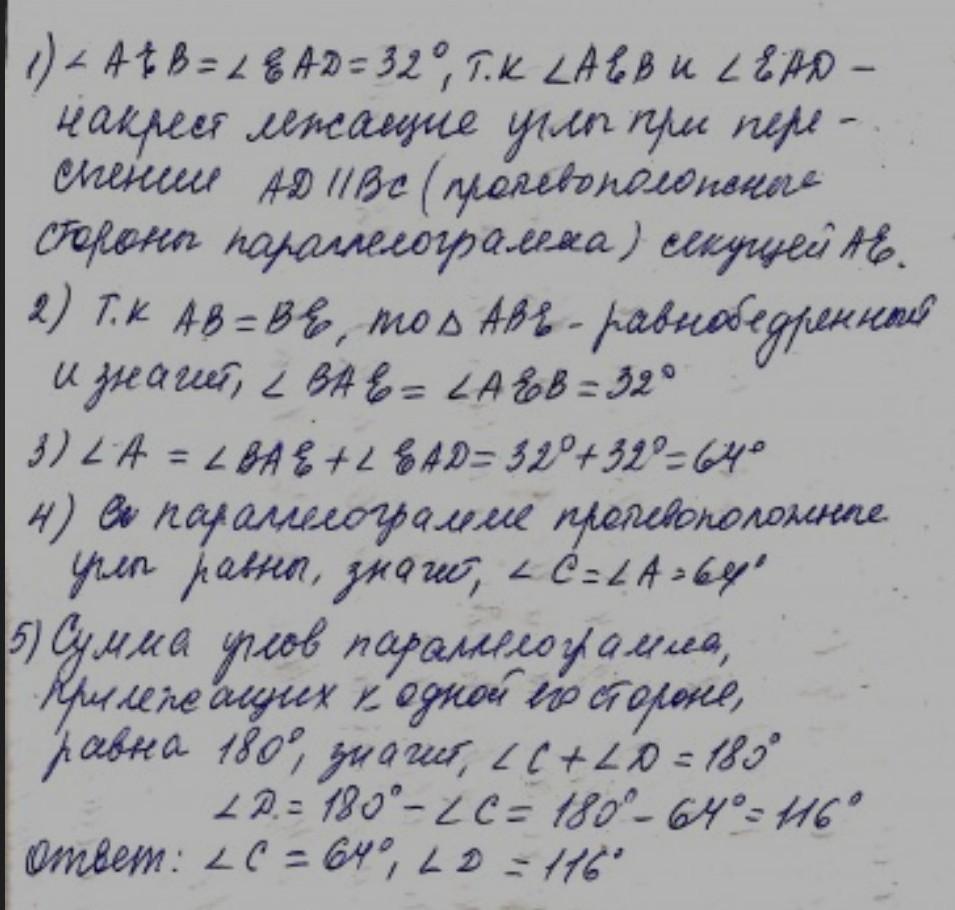 1) ∠AEB = ∠EAD = 32°, т.к ∠AEB и ∠EAD –
накрест лежащие углы при пере-
сечении AD || BC (противоположные
стороны параллелограмма) секущей AE.
2) Т.к AB = BE, то △ ABE - равнобедренный
и значит, ∠BAE = ∠AEB = 32°
3) ∠A = ∠BAE + ∠EAD = 32° + 32° = 64°
4) В параллелограмме противоположные
углы равны, значит, ∠C = ∠A = 64°
5) Сумма углов параллелограмма,
прилежащих к одной его стороне,
равна 180°, значит, ∠C + ∠D = 180°
∠D = 180° - ∠C = 180° - 64° = 116°
Ответ: ∠C = 64°, ∠D = 116°